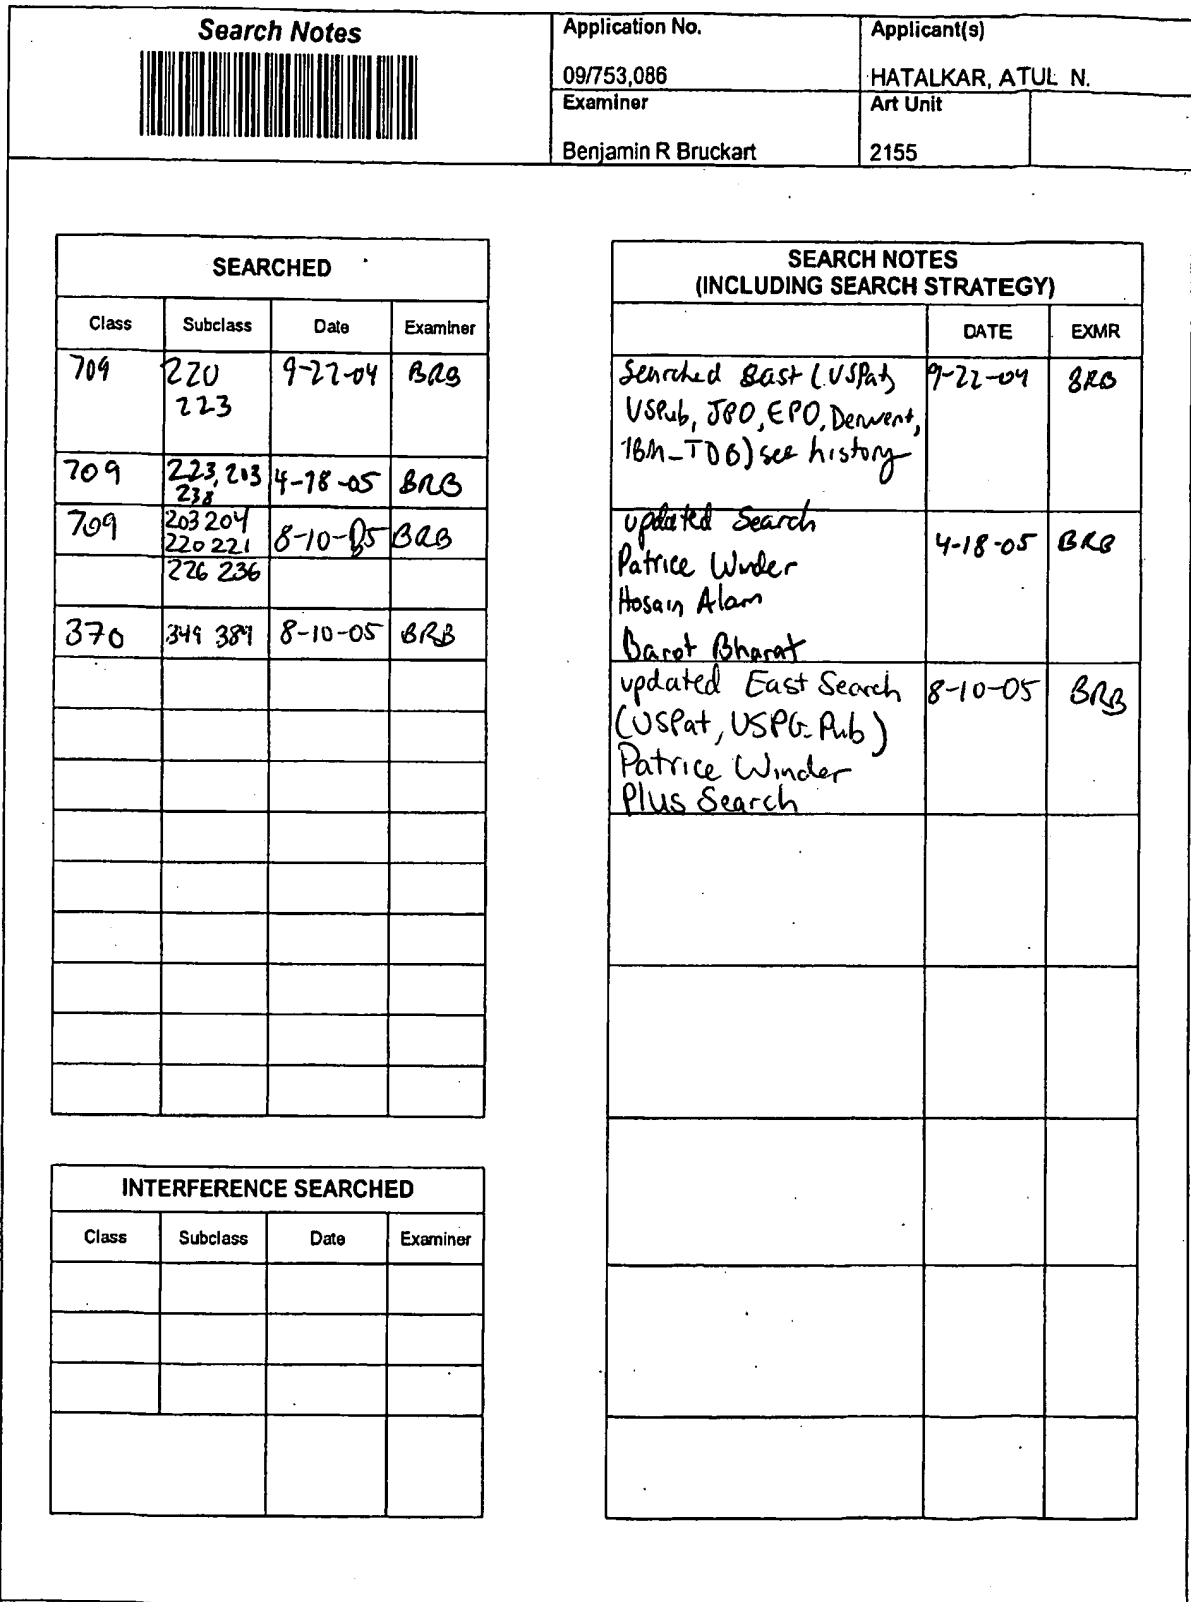 Search Notes
Application No.
09/753,086
Applicant(s)
HATALKAR, ATUL N.
Examiner
Benjamin R Bruckart
Art Unit
2155
SEARCHED
Class Subclass Date Examiner
709 220 9-22-04 BRB
223
709 223, 203 4-18-05 BRB
238
709 203 204 8-10-05 BRB
220 221
226 236
370 349 389 8-10-05 BRB
INTERFERENCE SEARCHED
Class Subclass Date Examiner
SEARCH NOTES
(INCLUDING SEARCH STRATEGY)
DATE EXMR
Searched East (USPat, 9-22-04 BRB
USPub, JPO, EPO, Derwent,
IBM_TDB) see history
updated Search 4-18-05 BRB
Patrice Winder
Hosain Alam
Barot Bharat
updated East Search 8-10-05 BRB
(USPat, USPG-Pub)
Patrice Winder
Plus Search